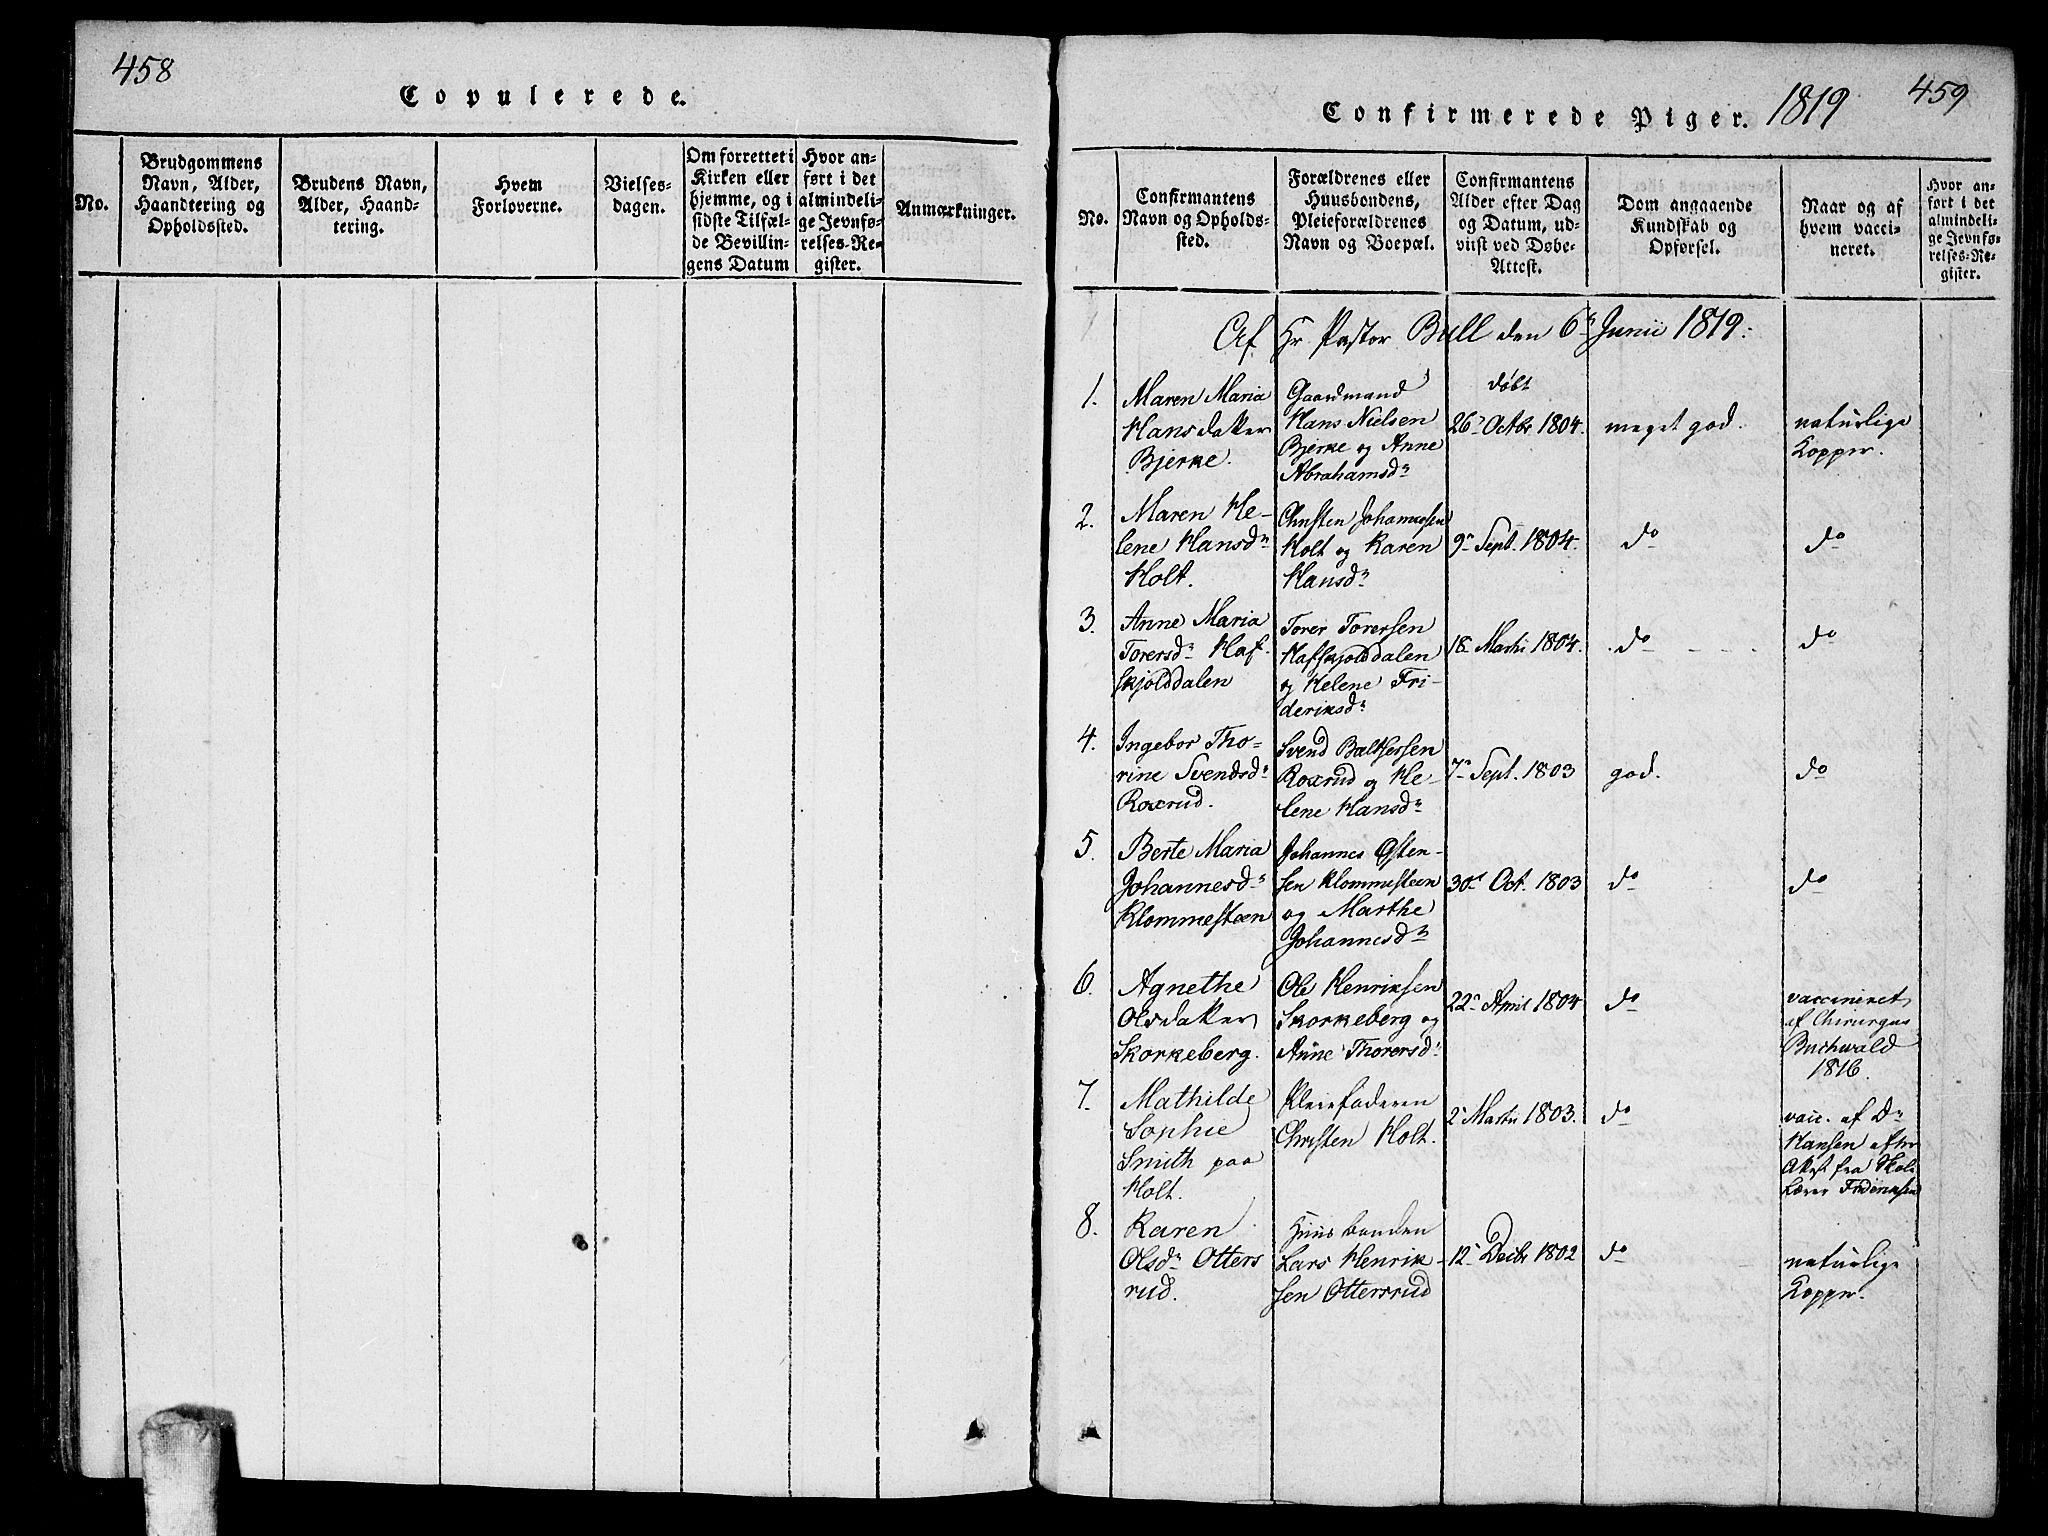 458
Copulerede.
No.
Brudgommens
Navn, Alder,
Haandtering og
Opholdssted.
Brudens Navn,
Alder, Haand-
tering.
Hvem
Forloverne.
Vielses-
dagen.
Om forrettet i
Kirken eller
hjemme, og i
sidste Tilfæl-
de Bevillin-
gens Datum
Hvor an-
ført i det
almindeli-
ge Jevnfø-
relses-Re-
gister.
Anmærkninger.
Confirmerede Piger. 1819
459
No.
Confirmantens
Navn og Opholds-
sted.
Forældrenes eller
Huusbondens,
Pleieforældrenes
Navn og Boepæl.
Confirmantens
Alder efter Dag
og Datum, ud-
viist ved Døbe-
Attest.
Dom angaaende
Kundskab og
Opførsel.
Naar og af
hvem vacci-
neret.
Hvor an-
ført i det
almindeli-
ge Jevnfø-
relses-Re-
gister.
Af Hr Pastor Bull den 6n Junii 1819:
1.
Maren Maria
Hansdatter
Bjerke.
Gaardmand
Hans Nielsen
Bjerke og Anne
Abrahamsdr
døbt
26 Octbr 1804.
meget god.
naturlige
Kopper.
2.
Maren He-
lene Hansdr
Holt.
Christen Johannesen
Holt og Karen
Hansdr
9n Sept. 1804.
do
do
3.
Anne Maria
Torersdr Haf-
skjolddalen
Torer Torersen
Hafskjolddalen
og Helene Fri-
deriksdr
18 Martii 1804.
do
do
4.
Ingebor Tho-
rine Svendsdr
Roxrud.
Svend Baltsersen
Roxrud og He-
lene Hansdr
7n Sept. 1803
god.
do
5.
Berte Maria
Johannesdr
Klommesteen
Johannes Østen-
sen Klommesteen
og Marthe
Johannesdr
30n Oct. 1803
do
do
6.
Agnethe
Olsdatter
Skorkeberg.
Ole Henriksen
Skorkeberg og
Anne Thorersdr
22n April 1804
do
vaccineret
af Chirurgus
Buchwald
1816.
7.
Mathilde
Sophie
Smith paa
Holt.
Pleiefaderen
Christen Holt.
2 Martii 1803.
do
vacc. af Dr
Hansen efter
Attest fra Skole
Lærer Frideriksen
8.
Karen
Olsdr Otters
rud.
Huusbonden
Lars Henrik-
sen Ottersrud
12 Decbr 1802
do
naturlige
Kopper.